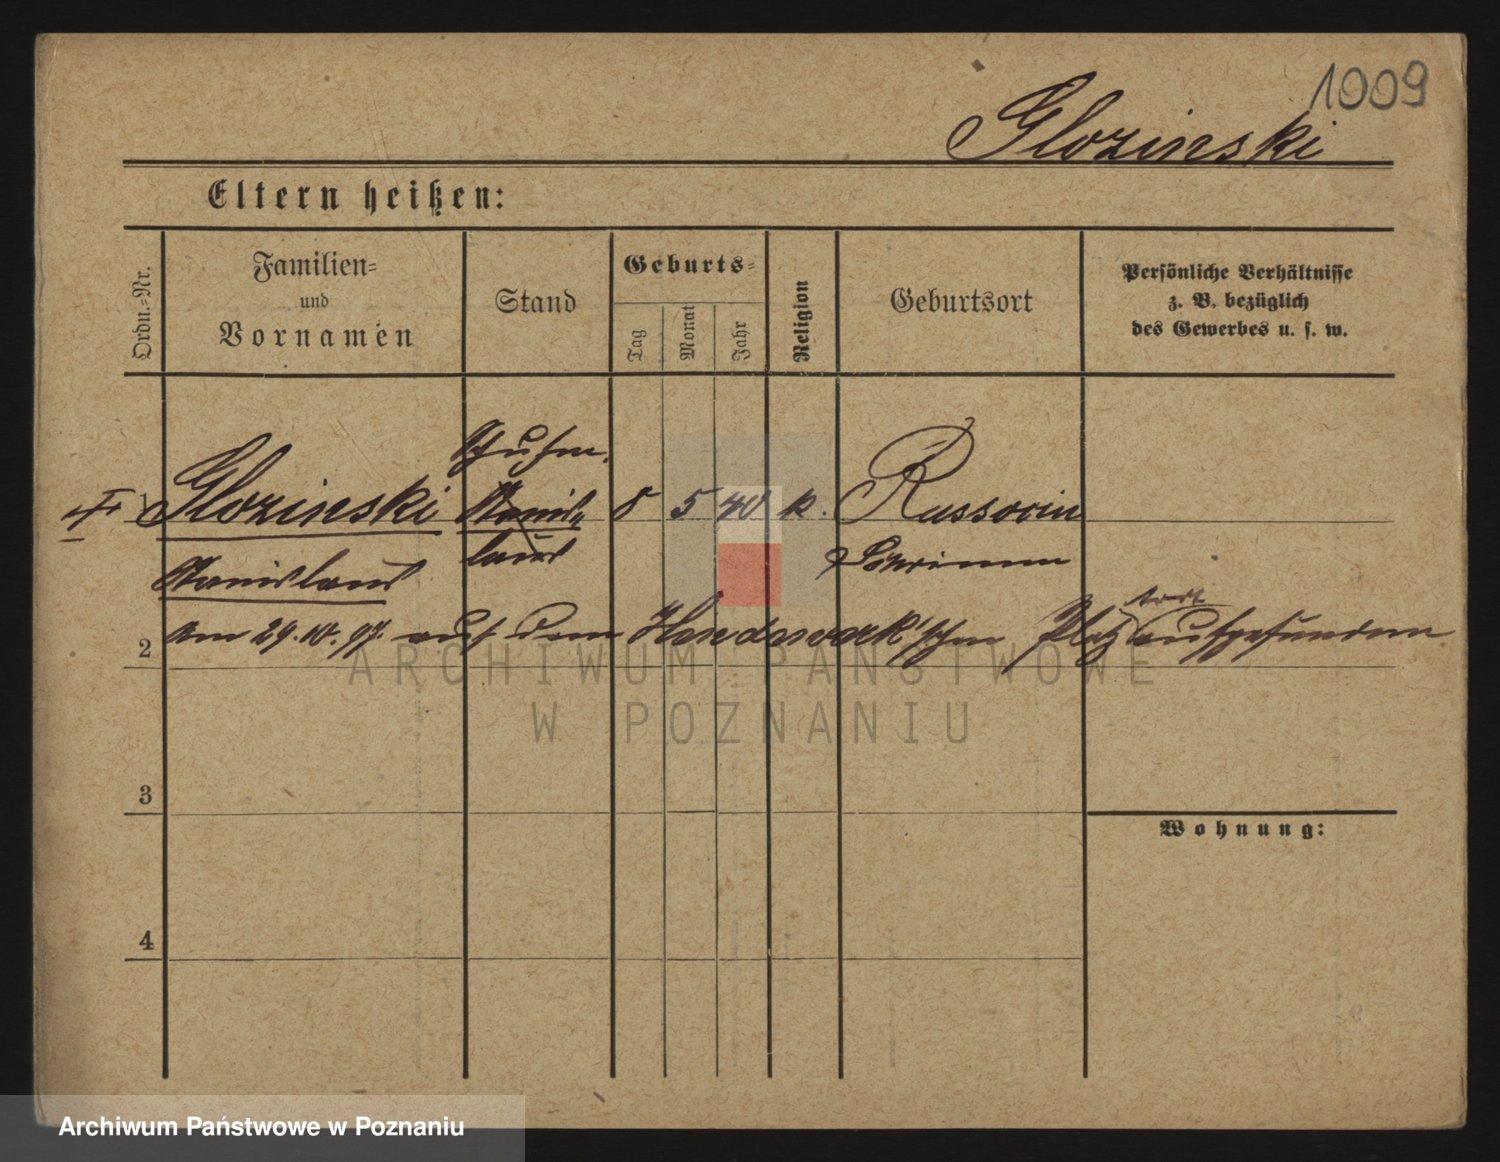 1009
Glozinski
Eltern heißen:
Ordn.=Nr.
Familien=
und
Vornamen
Stand
Geburts=
Tag
Monat
Jahr
Religion
Geburtsort
Persönliche Verhältnisse
z. B. bezüglich
des Gewerbes u. s. w.
Schuhm.
1 Glozinski Stanis= 8 5 40 k. Russocin
Stanislaus laus Schrimm
tot
2 Am 29.10.97. auf dem Handwerk'schen Platz aufgefunden
ARCHIWUM PAŃSTWOWE
W POZNANIU
3
Wohnung:
4
Archiwum Państwowe w Poznaniu